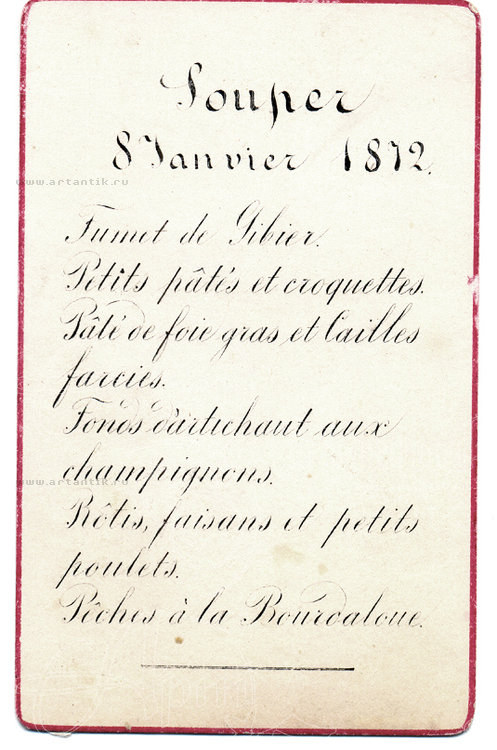 Souper
8 Janvier 1872.
www.artantik.ru
Fumet de Gibier.
Petits pâtés et croquettes.
Pâté de foie gras et Cailles
farcies.
Fonds d'artichaut aux
champignons.
www.artantik.ru
Rôtis, faisans et petits
poulets.
Pêches à la Bourdaloue.